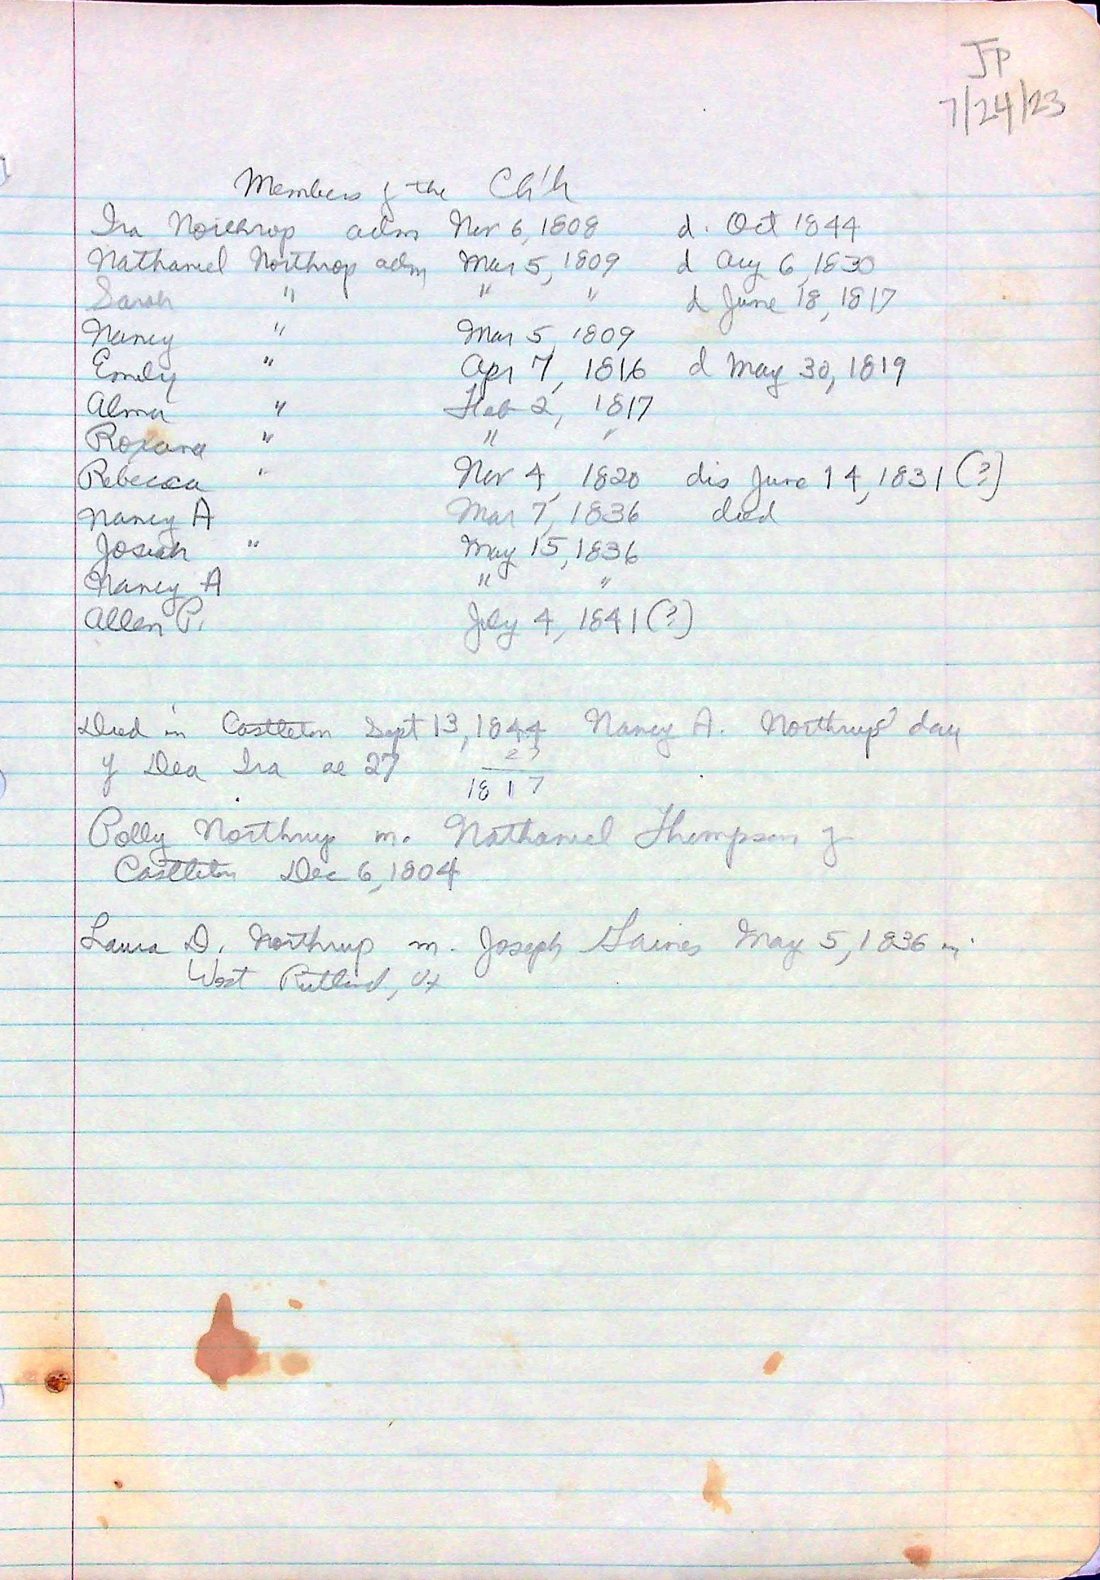 JP
7/24/23
Members of the Ch'h
Ira Northrop adm Nov 6, 1808 d. Oct 1844
Nathaniel Northrop adm Mar 5, 1809 d Aug 6, 1830
Sarah " " " d June 18, 1817
Nancy " Mar 5, 1809
Emily " Apr 7, 1816 d May 30, 1819
Alma " Feb 2, 1817
Roxana " " "
Rebecca " Nov 4, 1820 dis June 14, 1831 (?)
Nancy A Mar 7, 1836 died
Josiah " May 15, 1836
Nancy A " "
Allen P. July 4, 1841 (?)
Died in Castleton Sept 13, 1844 Nancy A. Northrup dau
of Dea Ira ae 27 27
1817
Polly Northrup m. Nathaniel Thompson of
Castleton Dec 6, 1804
Laura D. Northrup m. Joseph Gaines May 5, 1836 in
West Rutland, Vt